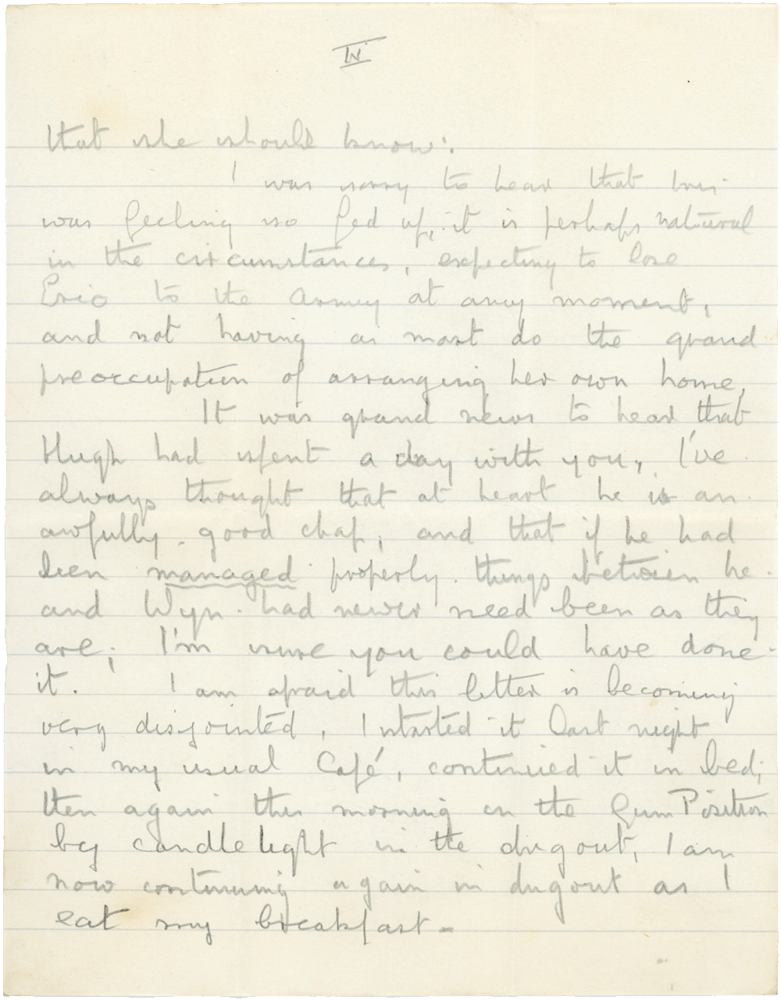 IV
that she should know:.
I was sorry to hear that Iris
was feeling so fed up, it is perhaps natural
in the circumstances, expecting to lose
Eric to the Army at any moment,
and not having as most do the grand
preoccupation of arranging her own home.
It was grand news to hear that
Hugh had spent a day with you, I've
always thought that at heart he is an
awfully good chap, and that if he had
been managed properly things between he
and Wyn had never need been as they
are; I'm sure you could have done
it. I am afraid this letter is becoming
very disjointed, I started it last night
in my usual Café, continued it in bed,
then again this morning on the Gun Position
by candle light in the dugout, I am
now continuing again in dugout as I
eat my breakfast -